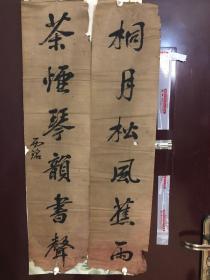 桐月松風蕉雨
茶煙琴韻書聲